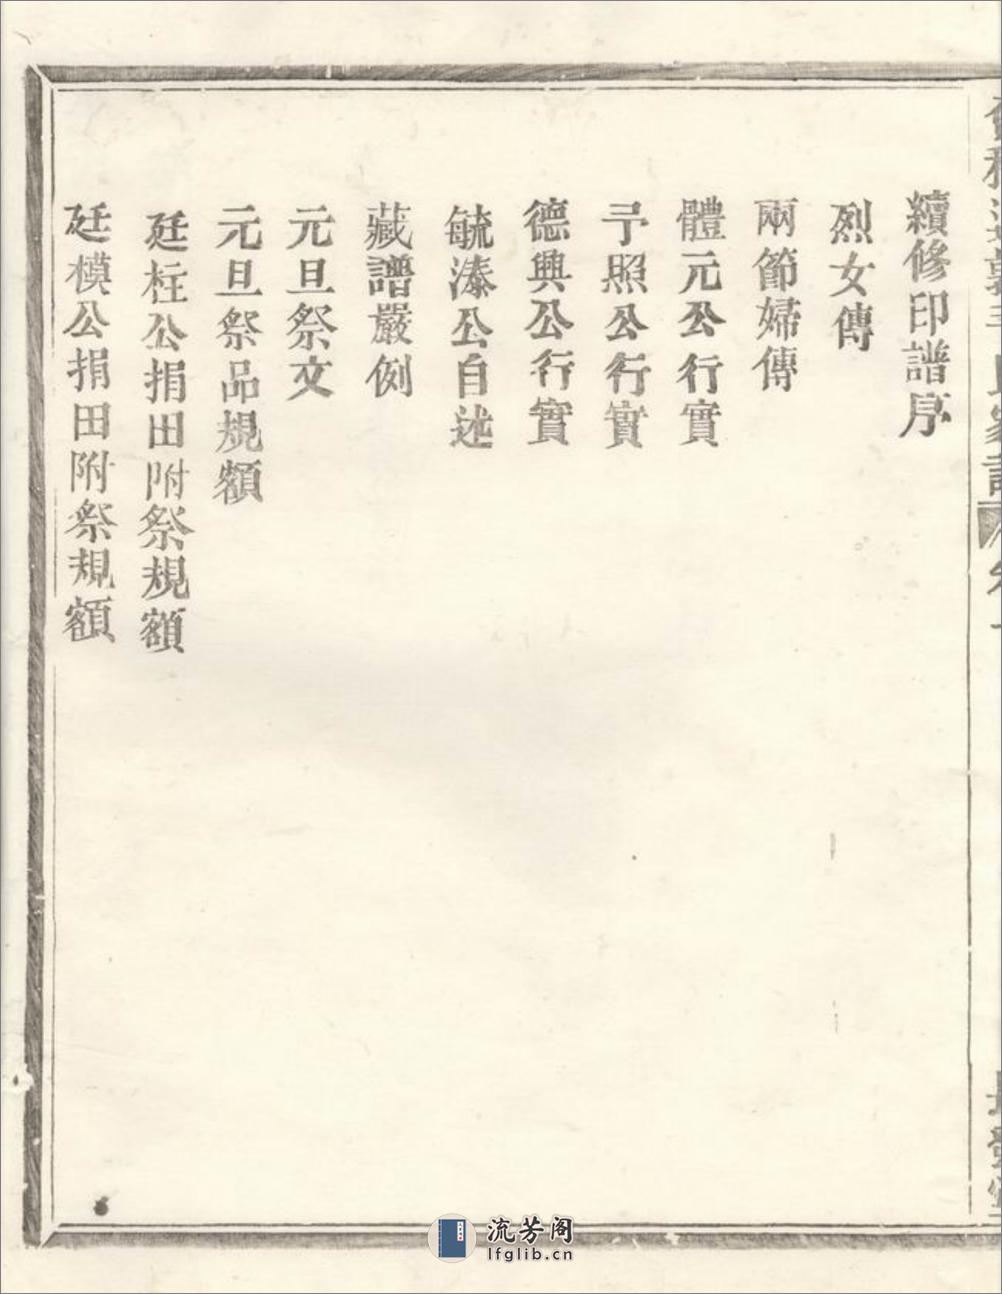 續修印譜序
烈女傳
兩節婦傳
體元公行實
予照公行實
德興公行實
毓漆公自述
藏譜嚴例
元旦祭文
元旦祭品規額
廷柱公捐田附祭規額
廷模公捐田附祭規額
流芳阁
lfglib.cn